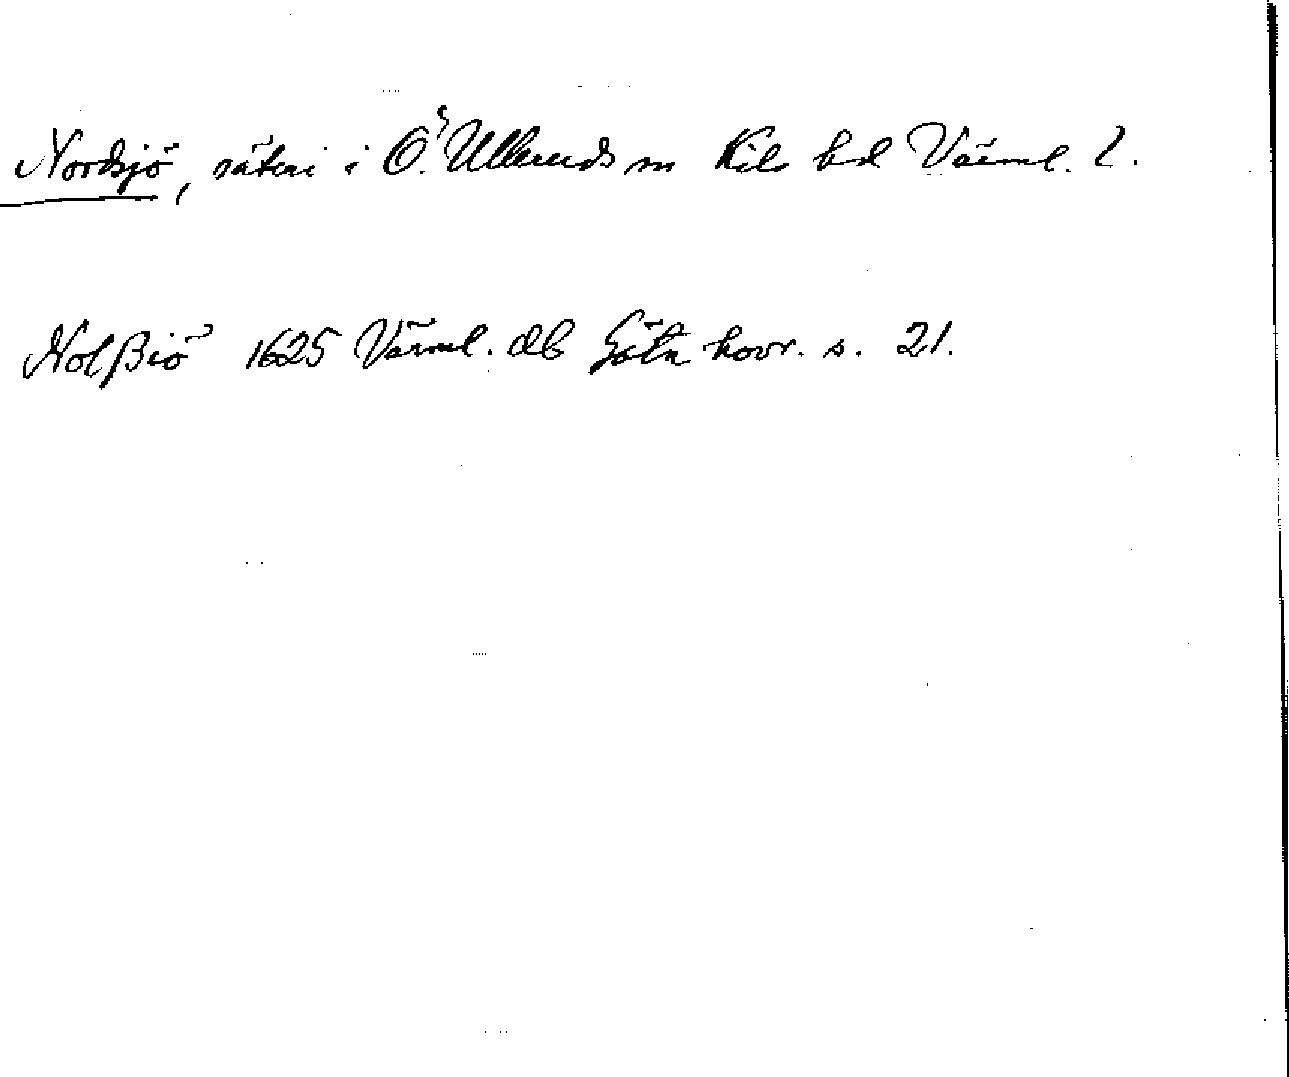 Nordsjö, säteri i Ö. Ulleruds sn Kils hd Värml. l.
Nolßiö 1625 Värml. db Göta hovr. s. 21.